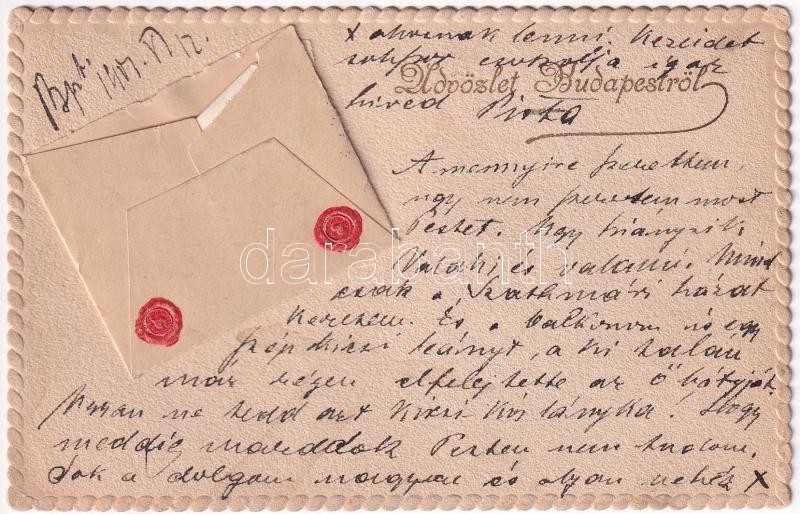 Bpt. 1901. VI 12.
x ahosnak lenni. Kezeidet
sokszor csokolja igaz
hived Pista
Üdvözlet Budapestről
A mennyire szerettem,
ugy nem szeretem most
Pestet. Ugy hiányzik
valaki és valami. Mind
csak a Szathmári házat
keresem. És a balkonon is egy
szép kicsi leányt, a ki talán
már régen elfelejtette az ő bátyját.
Ugyan ne tedd azt kicsi kis lányka! Hogy
meddig maradok Pesten nem tudom.
Sok a dolgom nagyon és olyan nehéz x
darabanth